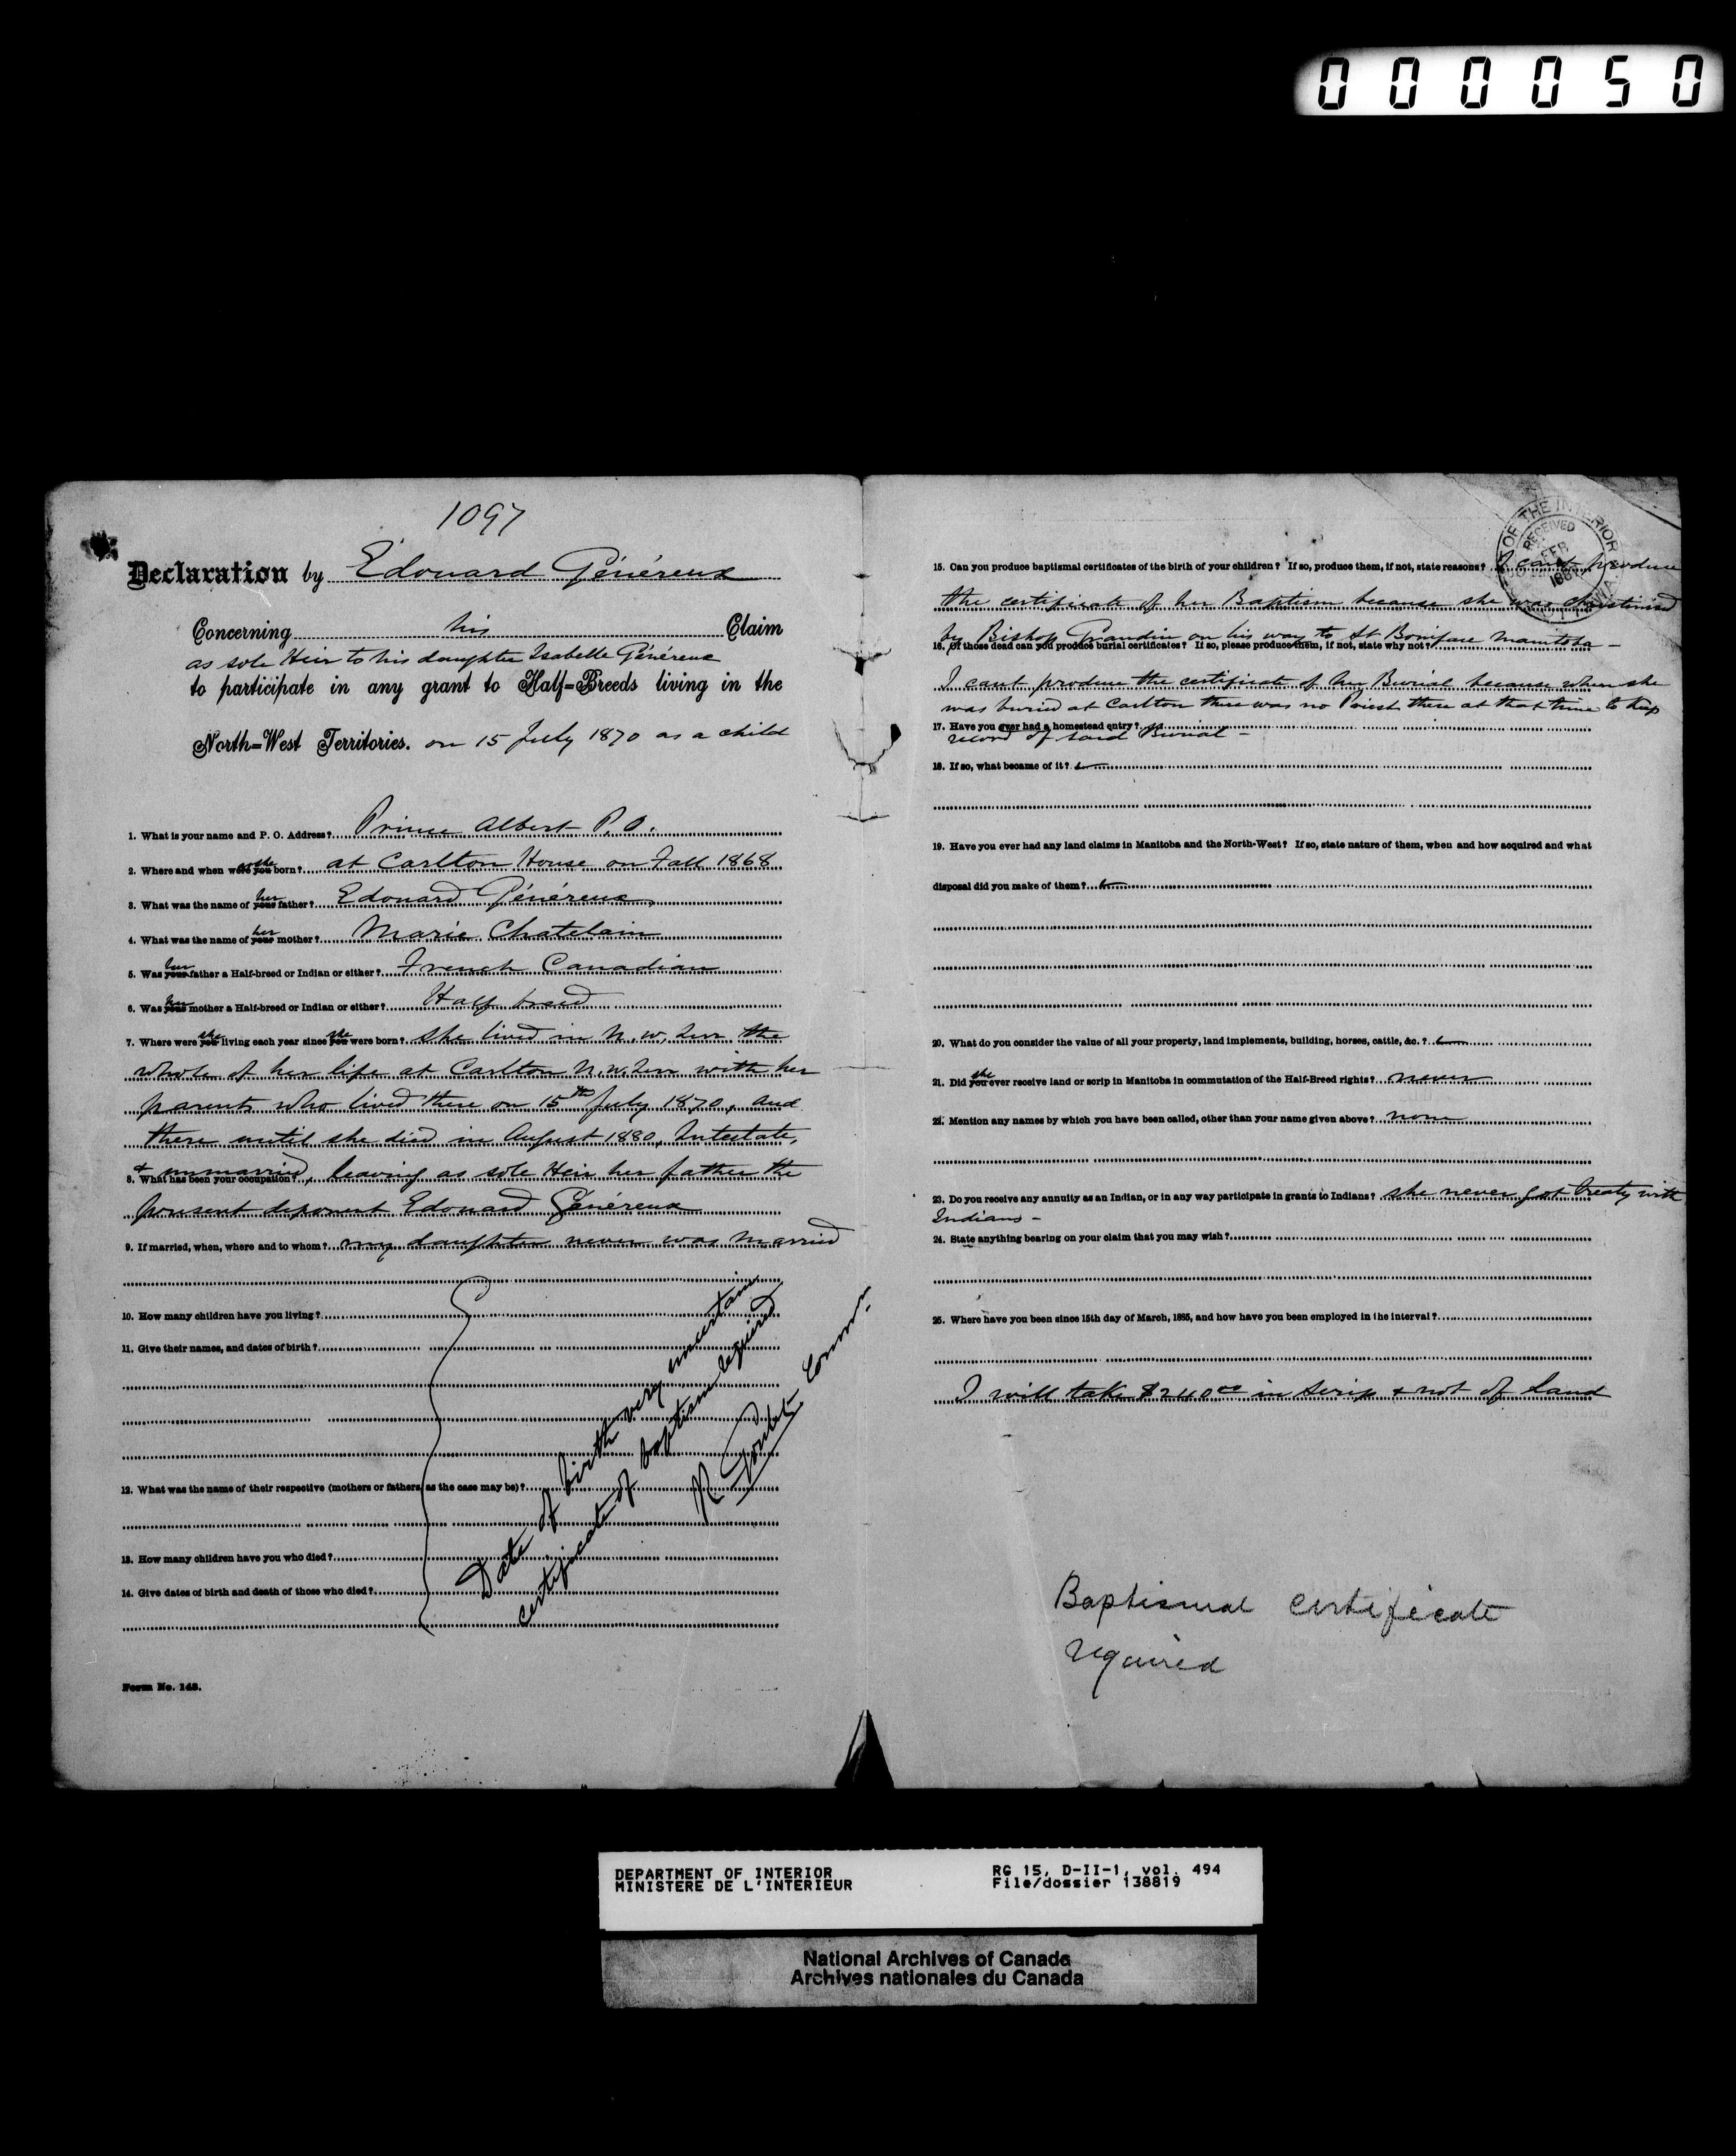 000050
1097
Declaration by Édouard Généreux
Concerning his Claim
as sole Heir to his daughter Isabelle Généreux
to participate in any grant to Half=Breeds living in the
North=West Territories. on 15 July 1870 as a child
1. What is your name and P. O. Address? Prince Albert P.O.
2. Where and when were you was she born? at Carlton House on Fall 1868
3. What was the name of your her father? Edouard Généreux,
4. What was the name of your her mother? Marie Chatelain
5. Was your her father a Half-breed or Indian or either? French Canadian
6. Was your her mother a Half-breed or Indian or either? Half breed
7. Where were you she living each year since you she were born? she lived in N. W. Terr the
whole of her life at Carlton N.W. Terr with her
parents who lived there on 15th July 1870, and
there until she died in August 1880, Intestate,
& unmarried, leaving as sole Heir her father the
8. What has been your occupation?
present deponent Edouard Généreux
9. If married, when, where and to whom? my daughter never was married
10. How many children have you living?
11. Give their names, and dates of birth?
12. What was the name of their respective (mothers or fathers as the case may be)?
13. How many children have you who died?
14. Give dates of birth and death of those who died?
Date of birth very uncertain
certificate of baptism required
R. Goulet Comr.
Form No. 148.
OF THE INTERIOR
RECEIVED
FEB
15. Can you produce baptismal certificates of the birth of your children? If so, produce them, if not, state reasons? I cant produce
the certificate of her Baptism because she was christined
by Bishop Grandin on his way to St Boniface Manitoba -
16. Of those dead can you produce burial certificates? If so, please produce them, if not, state why not?
I cant produce the certificate of her Burial because when she
was buried at Carlton there was no Priest there at that time to kep
17. Have you ever had a homestead entry?
record of said Burial -
18. If so, what became of it?
19. Have you ever had any land claims in Manitoba and the North-West? If so, state nature of them, when and how acquired and what
disposal did you make of them?
20. What do you consider the value of all your property, land implements, building, horses, cattle, &c.?
21. Did you she ever receive land or scrip in Manitoba in commutation of the Half-Breed rights? never
22. Mention any names by which you have been called, other than your name given above? none
23. Do you receive any annuity as an Indian, or in any way participate in grants to Indians? she never got treaty with
Indians -
24. State anything bearing on your claim that you may wish?
25. Where have you been since 15th day of March, 1885, and how have you been employed in the interval?
I will take $240.00 in scrip & not of land
Baptismal certificate
required
DEPARTMENT OF INTERIOR
MINISTERE DE L'INTERIEUR
RG 15, D-II-1, vol. 494
File/dossier 138819
National Archives of Canada
Archives nationales du Canada